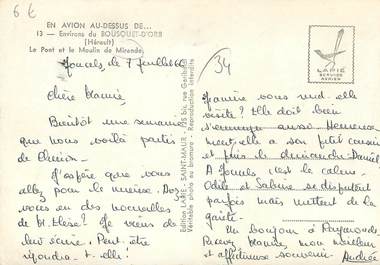 6 €
EN AVION AU-DESSUS DE...
13 — Environs du BOUSQUET-D'ORB
(Hérault)
Le Pont et le Moulin de Mirande
Joncels, le 7 Juillet 66
Chère Mamie,
Bientôt une semaine
que nous voilà partis
de
J'espère que vous
allez pour le mieux. Avez
vous eu des nouvelles
de Mr Hesse? Je viens de
leur écrire. Peut-être
répondra-t-elle!
Edition LAPIE - SAINT-MAUR - 125 bis, rue Garibaldi
Véritable photo au bromure - Reproduction interdite
34
LAPIE
SERVICE
AERIEN
Jeanine vous rend-elle
visite? Elle doit bien
s'ennuyer aussi. Heureuse
ment elle a son petit cousin
et puis le dimanche Daniel
A Joncels, c'est le calme.
Odile et Sabine se disputent
parfois mais mettent de la
gaîté.
Un bonjour à Raymonde
Recevez Mamie, mon meilleur
et affectueux souvenir. Andrée